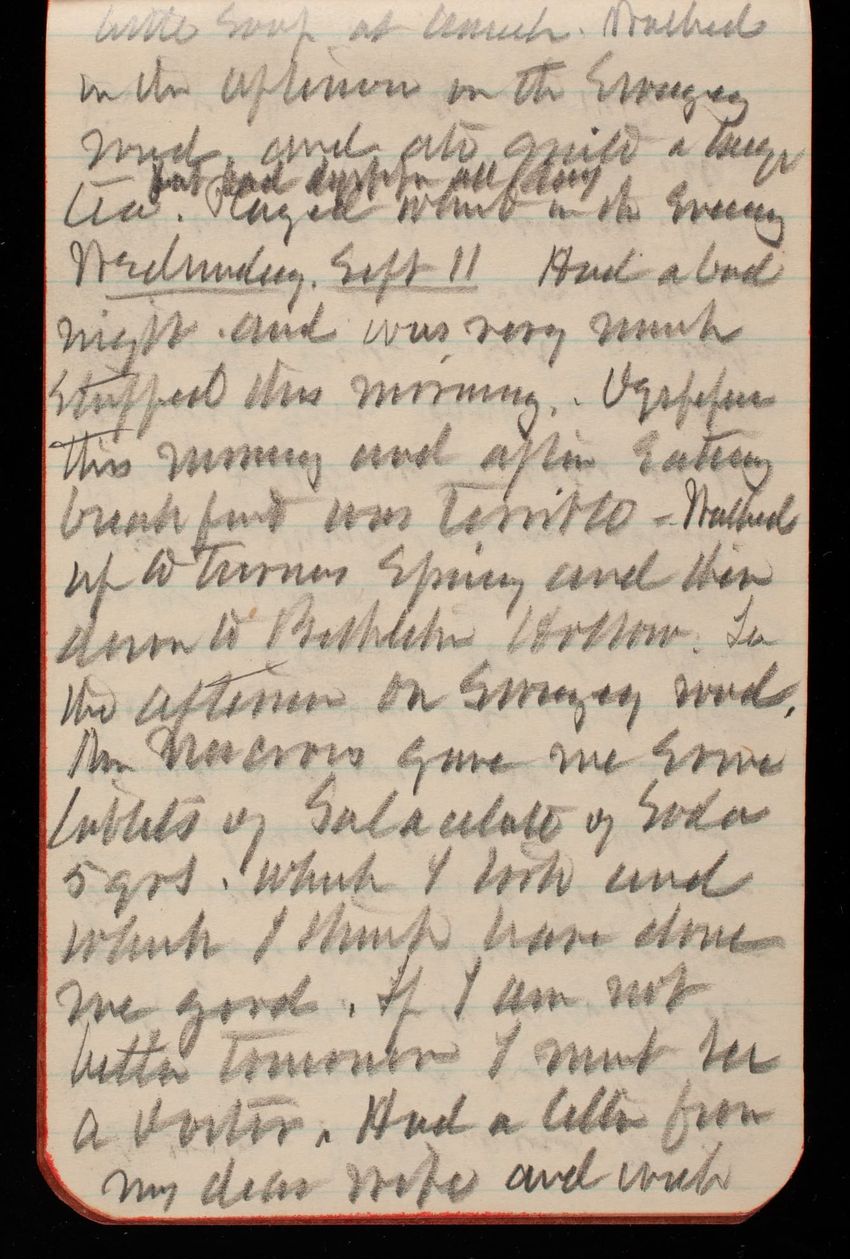 little soup at lunch. Walked
in the afternoon on the Swazey
road, and ate quite a large
but had dyspepsia all day
tea. Played whist in the evening
Wednesday, Sept 11 Had a bad
night and was very much
stuffed this morning. Dyspepsia
this morning and after eating
breakfast was terrible - Walked
up to Turners Spring and then
down to Bethlehem Hollow. In
the afternoon on Swazey road.
gave me some
tablets of Salacelate of Soda
5 grs. which I took and
which I think have done
me good. If I am not
better tomorrow I must see
a Doctor. Had a letter from
my dear wife and with